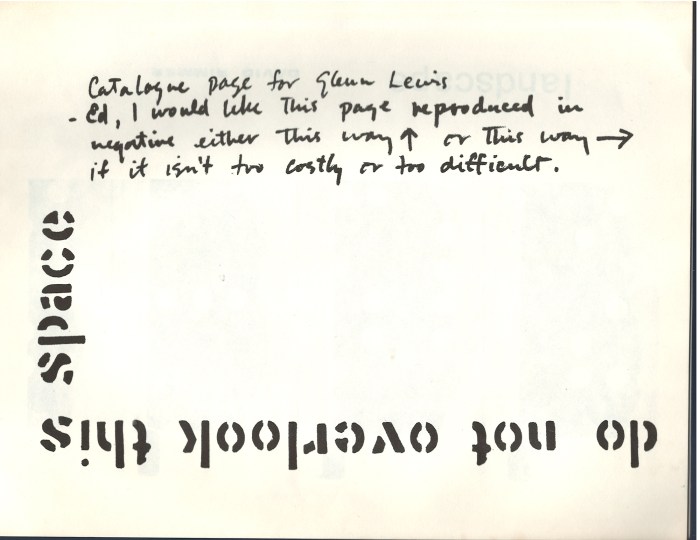 Catalogue page for Glenn Lewis
- Ed, I would like this page reproduced in
negative either this way ↑ or this way →
if it isn't too costly or too difficult.
do not overlook this
space